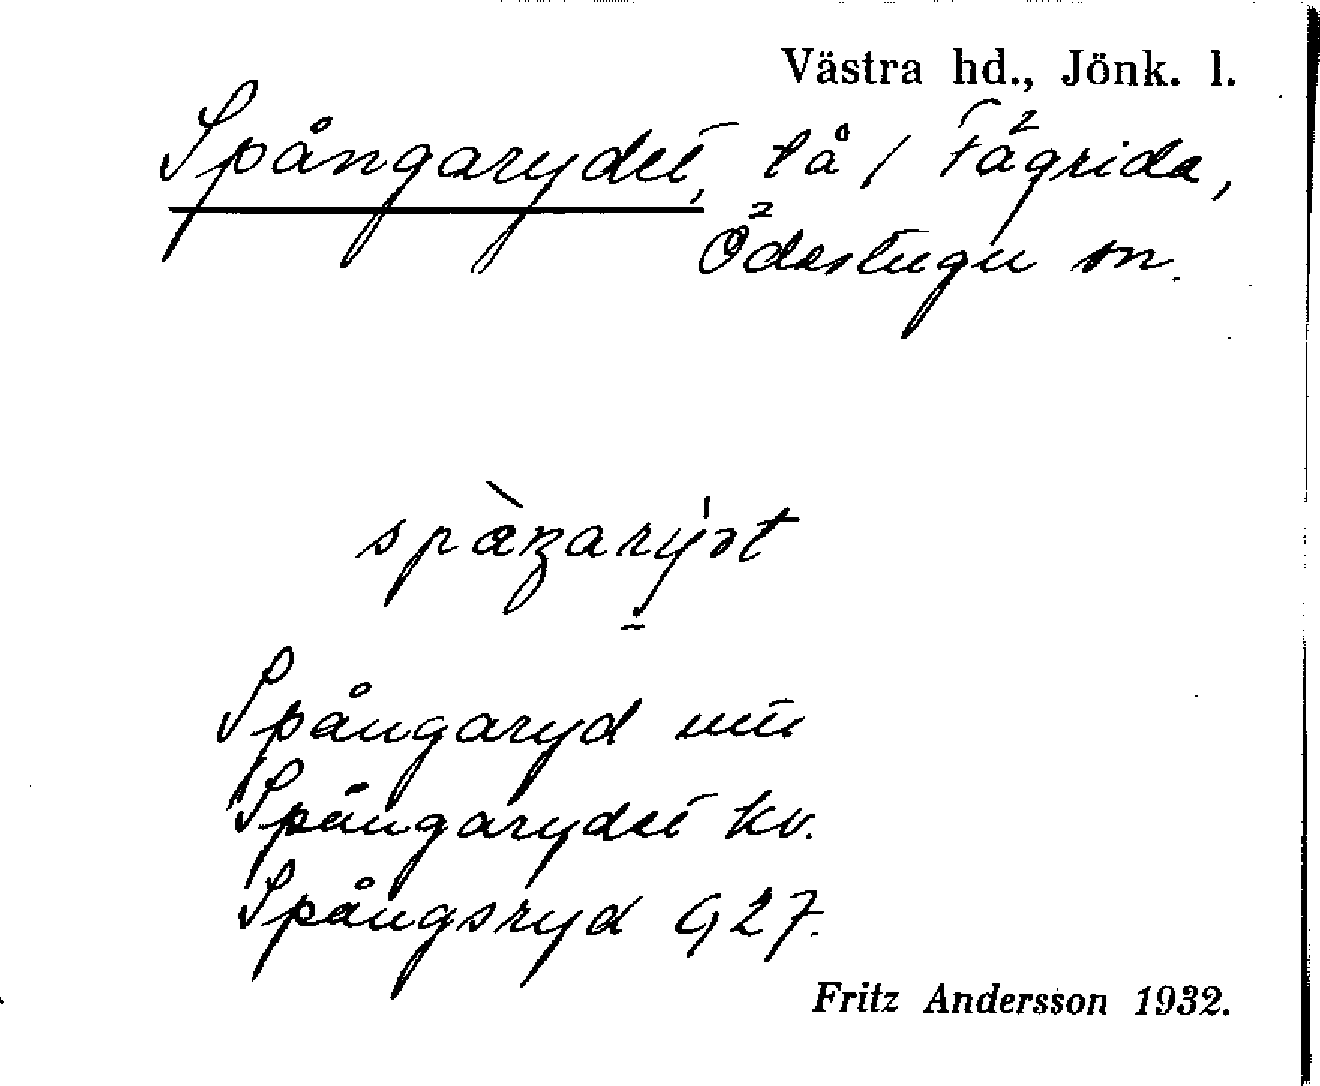 Västra hd., Jönk. l.
Spångarydet, lå / Fågrida,
Ödestugu sn.
Spångaryd
Spångarydet kv.
Spångsryd G 27.
Fritz Andersson 1932.